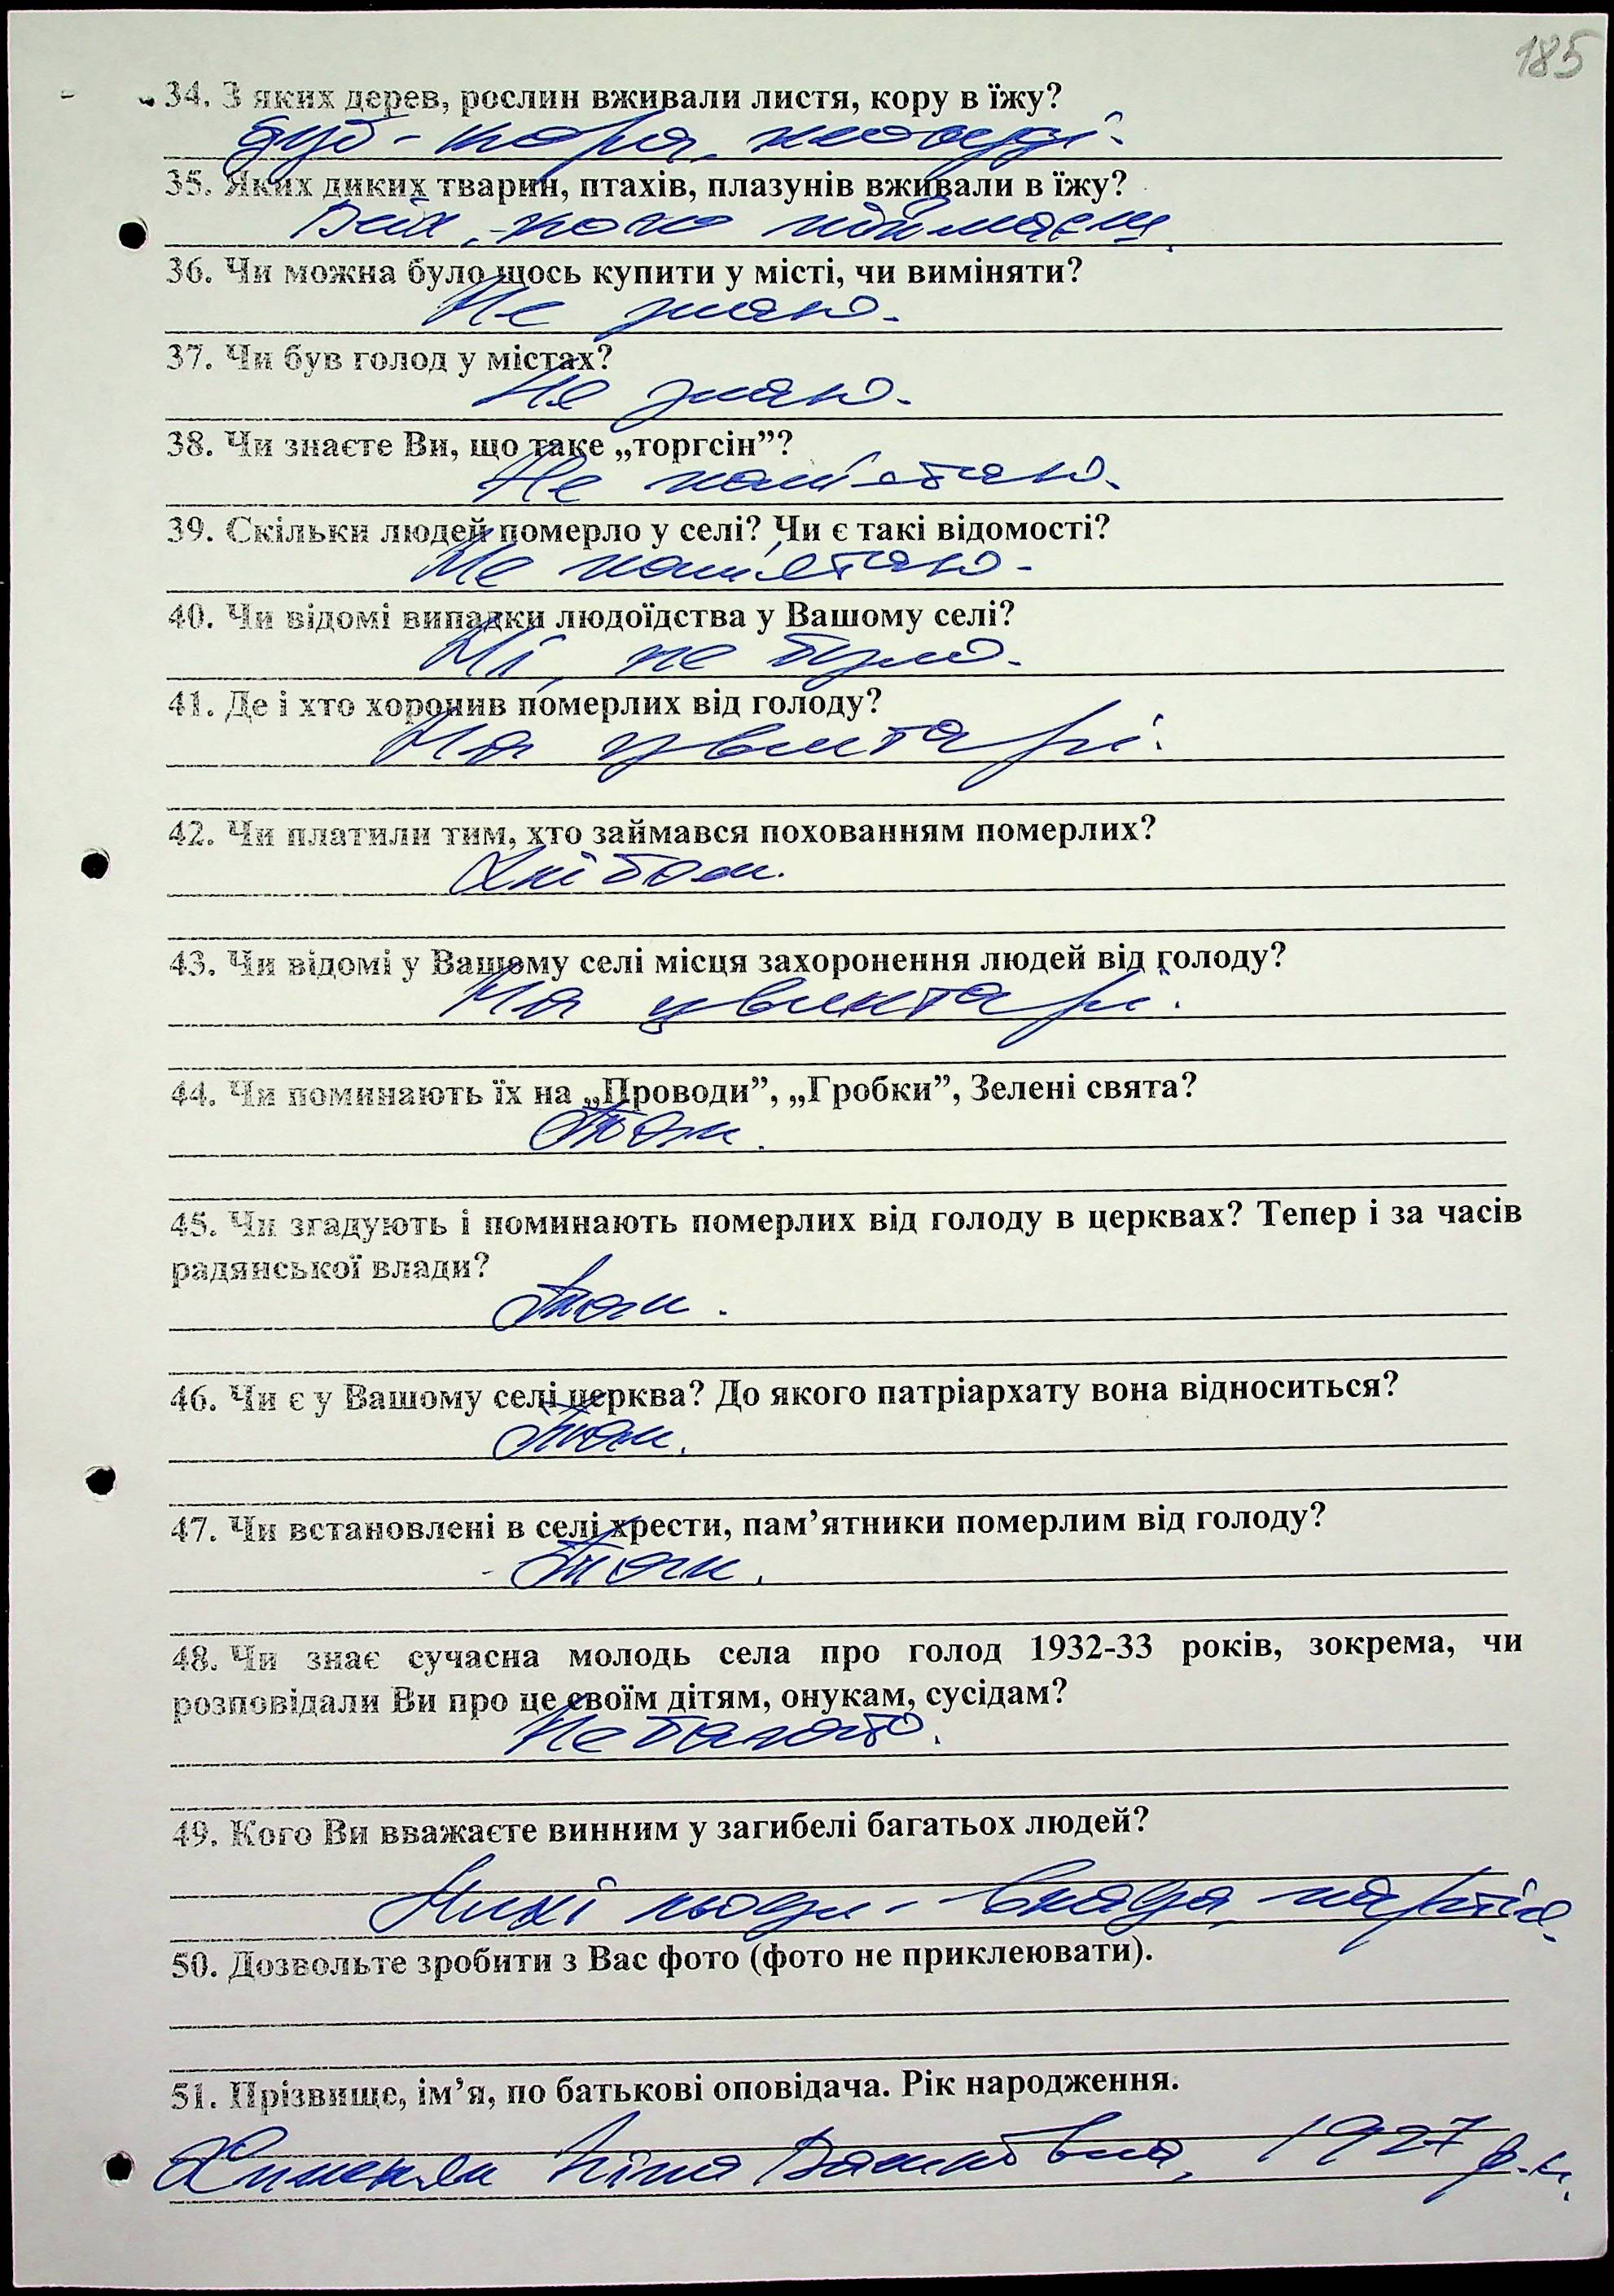 185
34. З яких дерев, рослин вживали листя, кору в їжу?
дуб - кора, жолуді.
35. Яких диких тварин, птахів, плазунів вживали в їжу?
Всіх, кого піймаєш.
36. Чи можна було щось купити у місті, чи виміняти?
Не знаю.
37. Чи був голод у містах?
Не знаю.
38. Чи знаєте Ви, що таке „торгсін”?
Не пам'ятаю.
39. Скільки людей померло у селі? Чи є такі відомості?
Не пам'ятаю.
40. Чи відомі випадки людоїдства у Вашому селі?
Ні, не було.
41. Де і хто хоронив померлих від голоду?
На цвинтарі.
42. Чи платили тим, хто займався похованням померлих?
Хлібом.
43. Чи відомі у Вашому селі місця захоронення людей від голоду?
На цвинтарі.
44. Чи поминають їх на „Проводи”, „Гробки”, Зелені свята?
Так.
45. Чи згадують і поминають померлих від голоду в церквах? Тепер і за часів
радянської влади?
Так.
46. Чи є у Вашому селі церква? До якого патріархату вона відноситься?
Так.
47. Чи встановлені в селі хрести, пам’ятники померлим від голоду?
- Так.
48. Чи знає сучасна молодь села про голод 1932-33 років, зокрема, чи
розповідали Ви про це своїм дітям, онукам, сусідам?
Небагато.
49. Кого Ви вважаєте винним у загибелі багатьох людей?
люди - влада, партія.
50. Дозвольте зробити з Вас фото (фото не приклеювати).
51. Прізвище, ім’я, по батькові оповідача. Рік народження.
Ніна 1927 р.н.